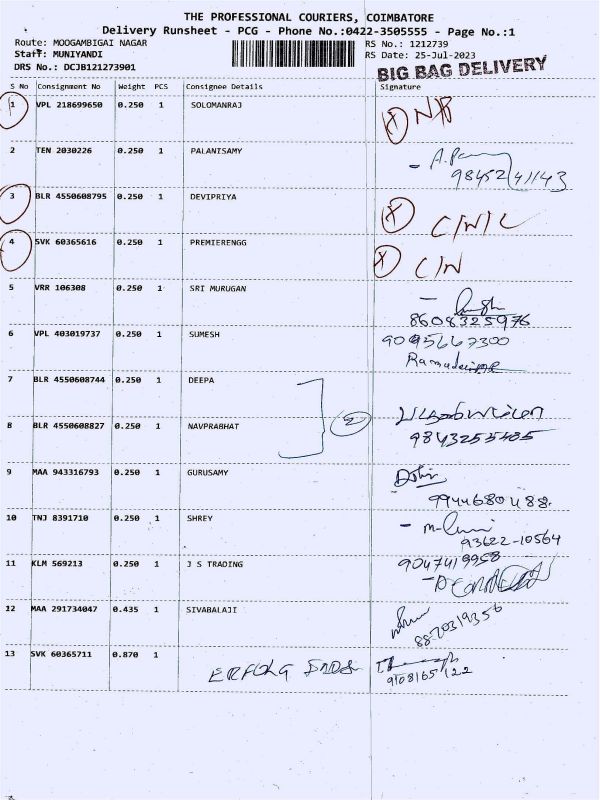 THE PROFESSIONAL COURIERS, COIMBATORE
Delivery Runsheet - PCG - Phone No.:0422-3505555 - Page No.:1
Route: MOOGAMBIGAI NAGAR RS No.: 1212739
Staff: MUNIYANDI RS Date: 25-Jul-2023
DRS No.: DCJB121273901 BIG BAG DELIVERY
S No Consignment No Weight PCS Consignee Details Signature
1 VPL 218699650 0.250 1 SOLOMANRAJ
2 TEN 2030226 0.250 1 PALANISAMY
9845241143
3 BLR 4550608795 0.250 1 DEVIPRIYA
4 SVK 60365616 0.250 1 PREMIERENGG C/N
5 VRR 106308 0.250 1 SRI MURUGAN
8608325976
6 VPL 403019737 0.250 1 SUMESH 9095667300
7 BLR 4550608744 0.250 1 DEEPA
8 BLR 4550608827 0.250 1 NAVPRABHAT 2
9843255485
9 MAA 943316793 0.250 1 GURUSAMY
9944680488
10 TNJ 8391710 0.250 1 SHREY
93622-10564
11 KLM 569213 0.250 1 J S TRADING 9047419958
12 MAA 291734047 0.435 1 SIVABALAJI
8870319356
13 SVK 60365711 0.870 1
9108165122